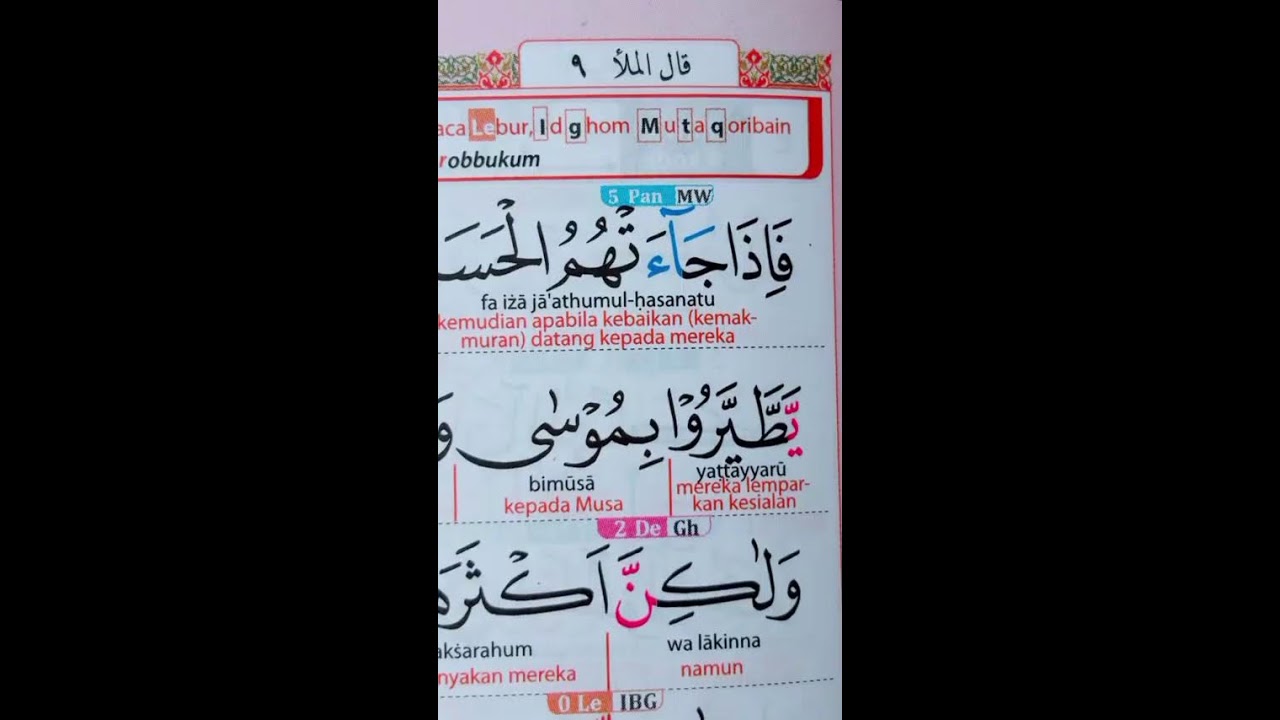 قال الملأ ٩
aca Lebur, Idghom Mutaqoribain
robbukum
5 Pan MW
فَاِذَا جَاۤءَتْهُمُ الْحَسَ
fa iżā jā'athumul-ḥasanatu
kemudian apabila kebaikan (kemak-
muran) datang kepada mereka
يَّطَّيَّرُوْا بِمُوْسٰى وَ
yaṭṭayyarū bimūsā
mereka lempar-
kan kesialan kepada Musa
2 De Gh
وَلٰكِنَّ اَكْثَرَه
wa lākinna akṡarahum
namun nyakan mereka
0 Le IBG